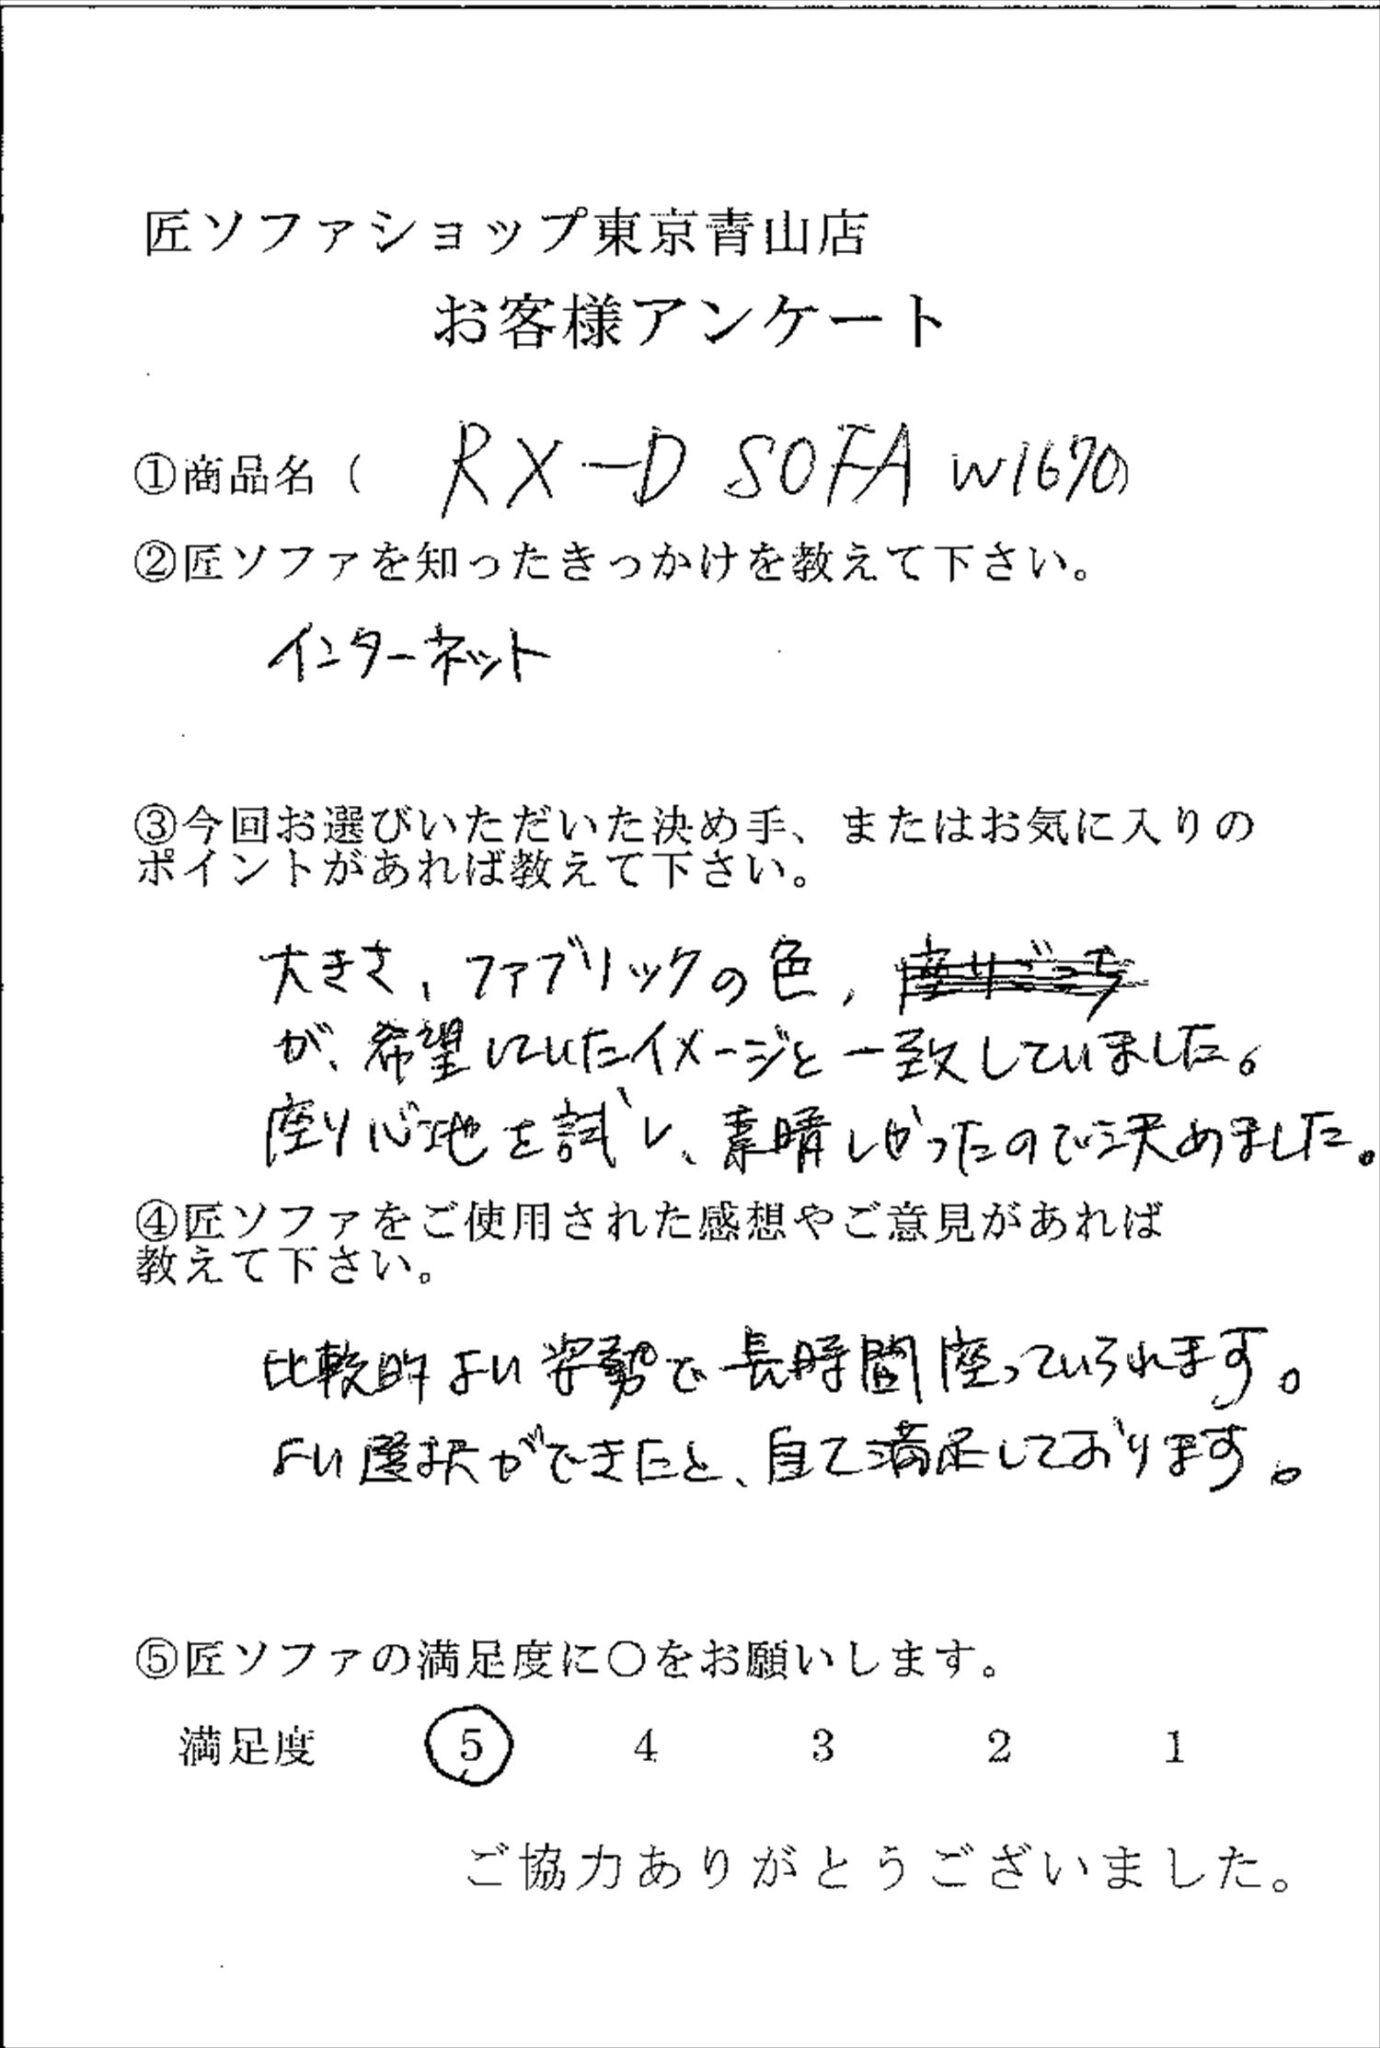 匠ソファショップ東京青山店
お客様アンケート
①商品名（ RX-D SOFA W1670）
②匠ソファを知ったきっかけを教えて下さい。
インターネット
③今回お選びいただいた決め手、またはお気に入りの
ポイントがあれば教えて下さい。
大きさ、ファブリックの色、
が、希望していたイメージと一致していました。
座り心地を試し、素晴しかったので決めました。
④匠ソファをご使用された感想やご意見があれば
教えて下さい。
比較的よい姿勢で長時間座っていられます。
よい選択ができたと、満足しております。
⑤匠ソファの満足度に〇をお願いします。
満足度 5 4 3 2 1
ご協力ありがとうございました。